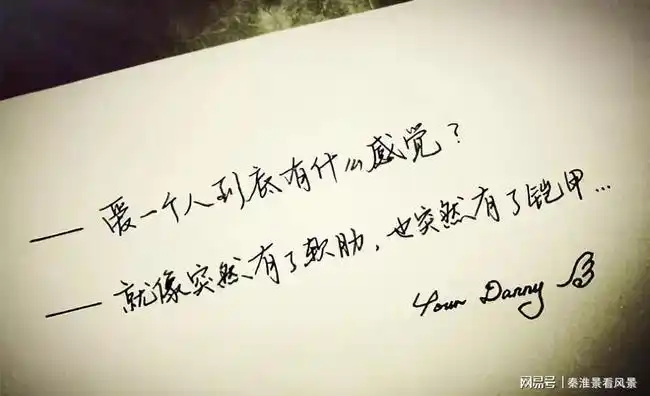 —— 爱一个人到底有什么感觉？
—— 就像突然有了软肋，也突然有了铠甲...
Your Danny B
网易号 | 秦淮景看风景